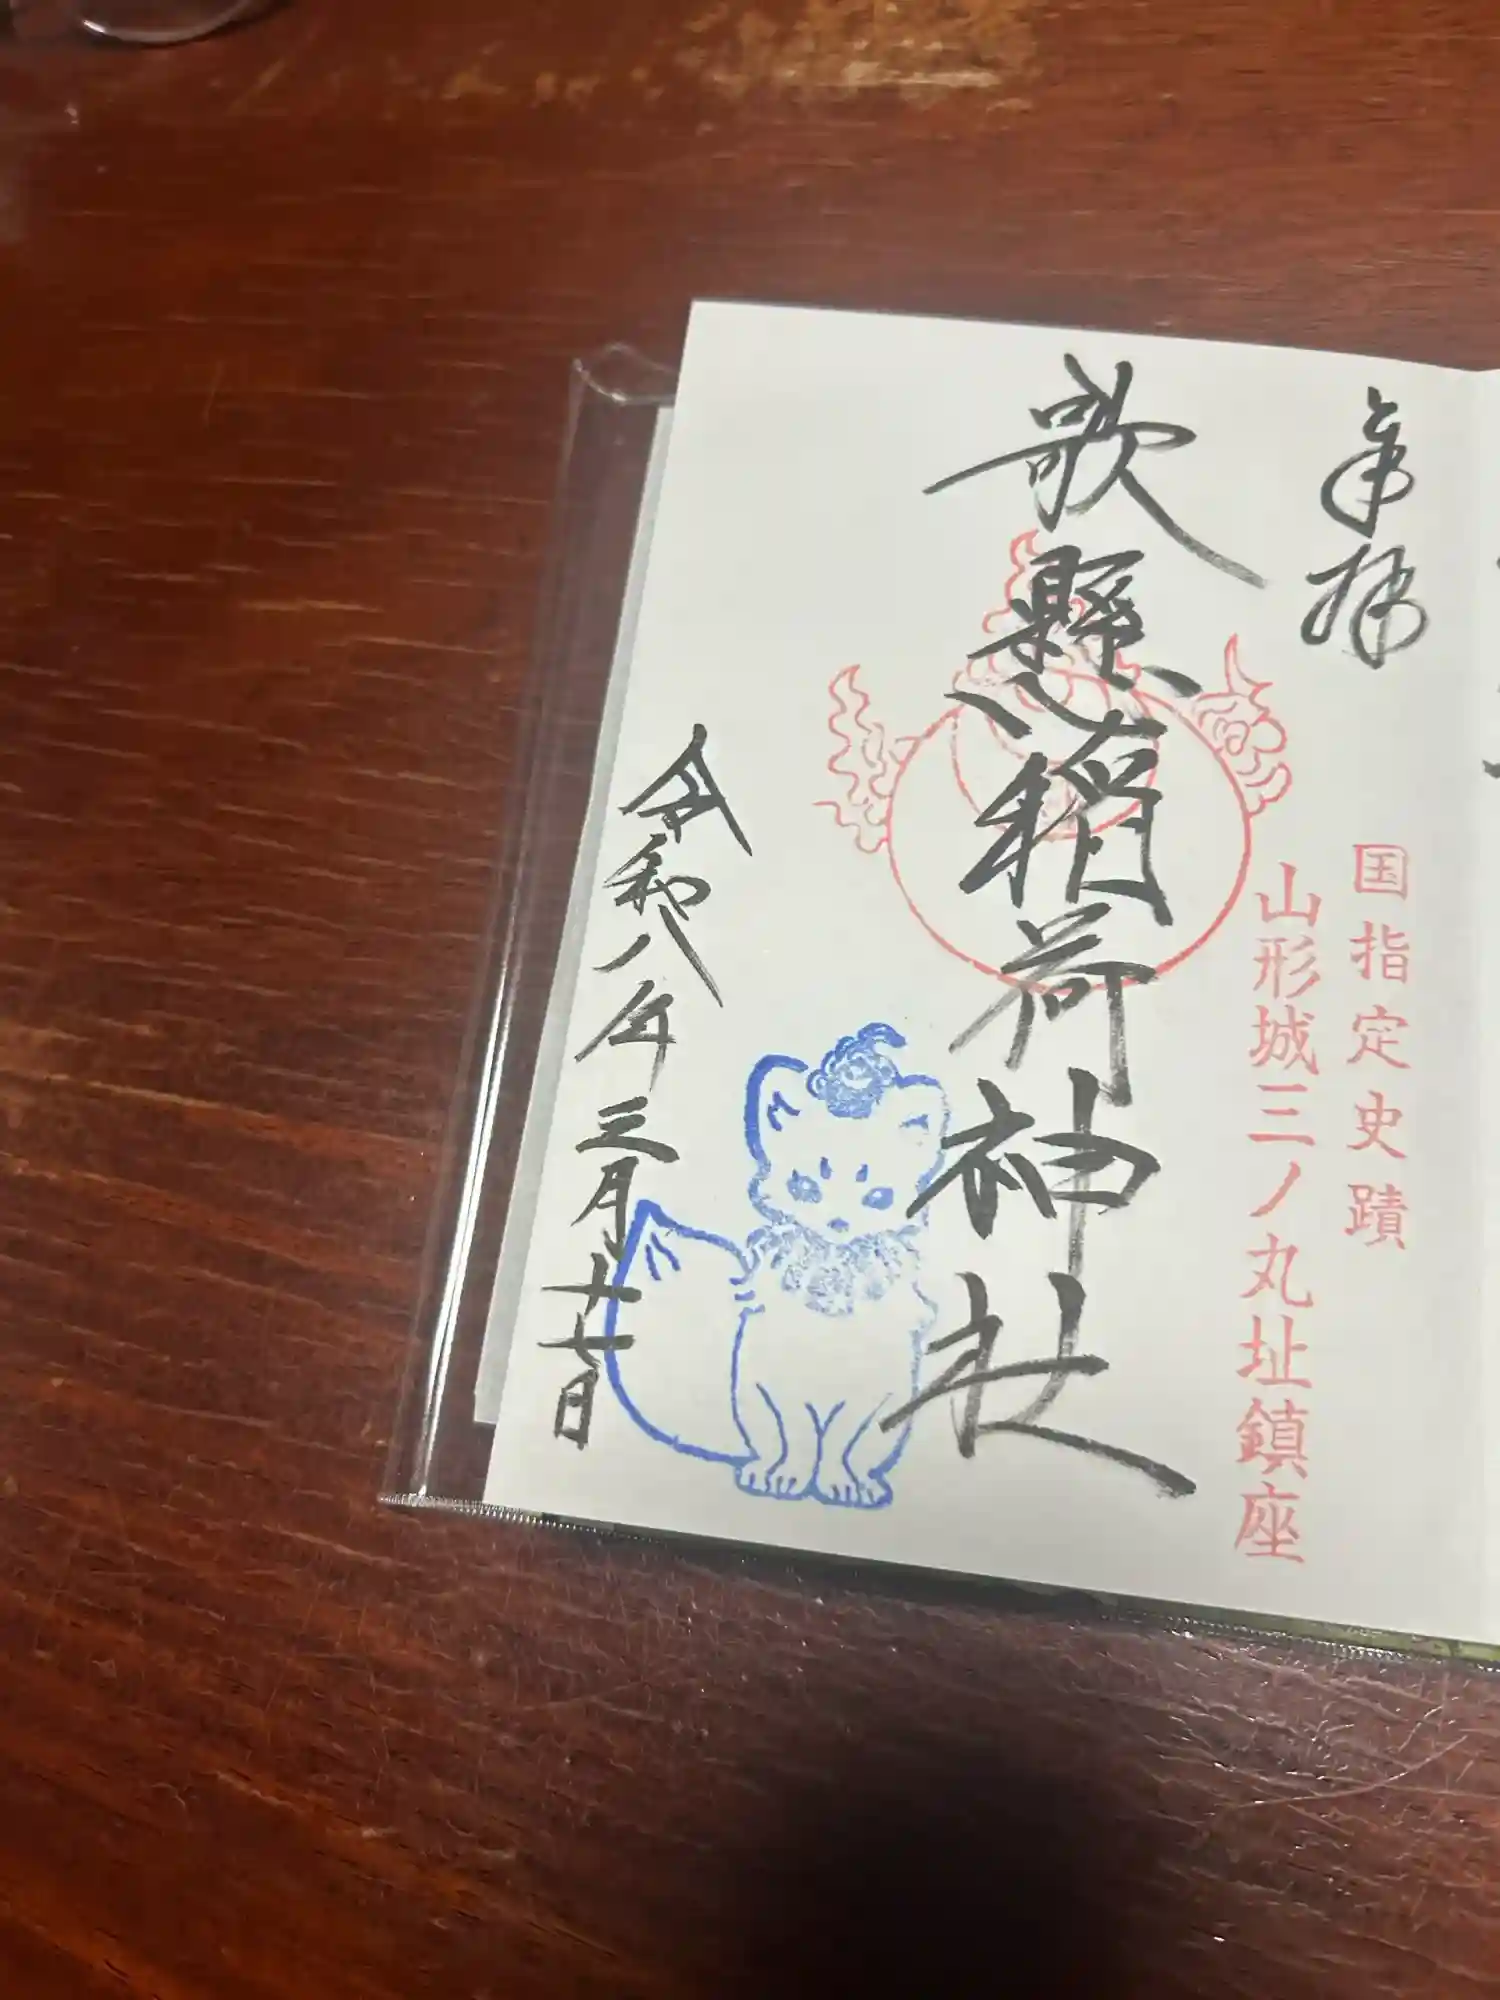 奉拝
国指定史蹟
山形城三ノ丸址鎮座
歌懸稲荷神社
令和八年三月十七日